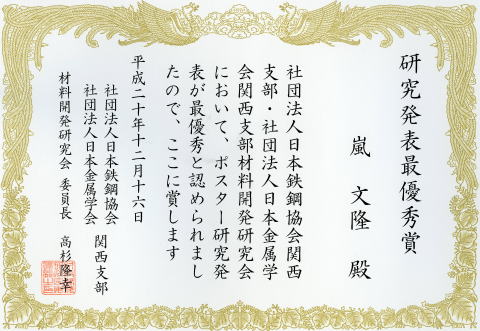 研究発表最優秀賞
嵐 文隆 殿
社団法人日本鉄鋼協会関西
支部・社団法人日本金属学
会関西支部材料開発研究会
において、ポスター研究発
表が最優秀と認められまし
たので、ここに賞します
平成二十年十二月十六日
社団法人日本鉄鋼協会
社団法人日本金属学会
関西支部
材料開発研究会 委員長 高杉隆幸